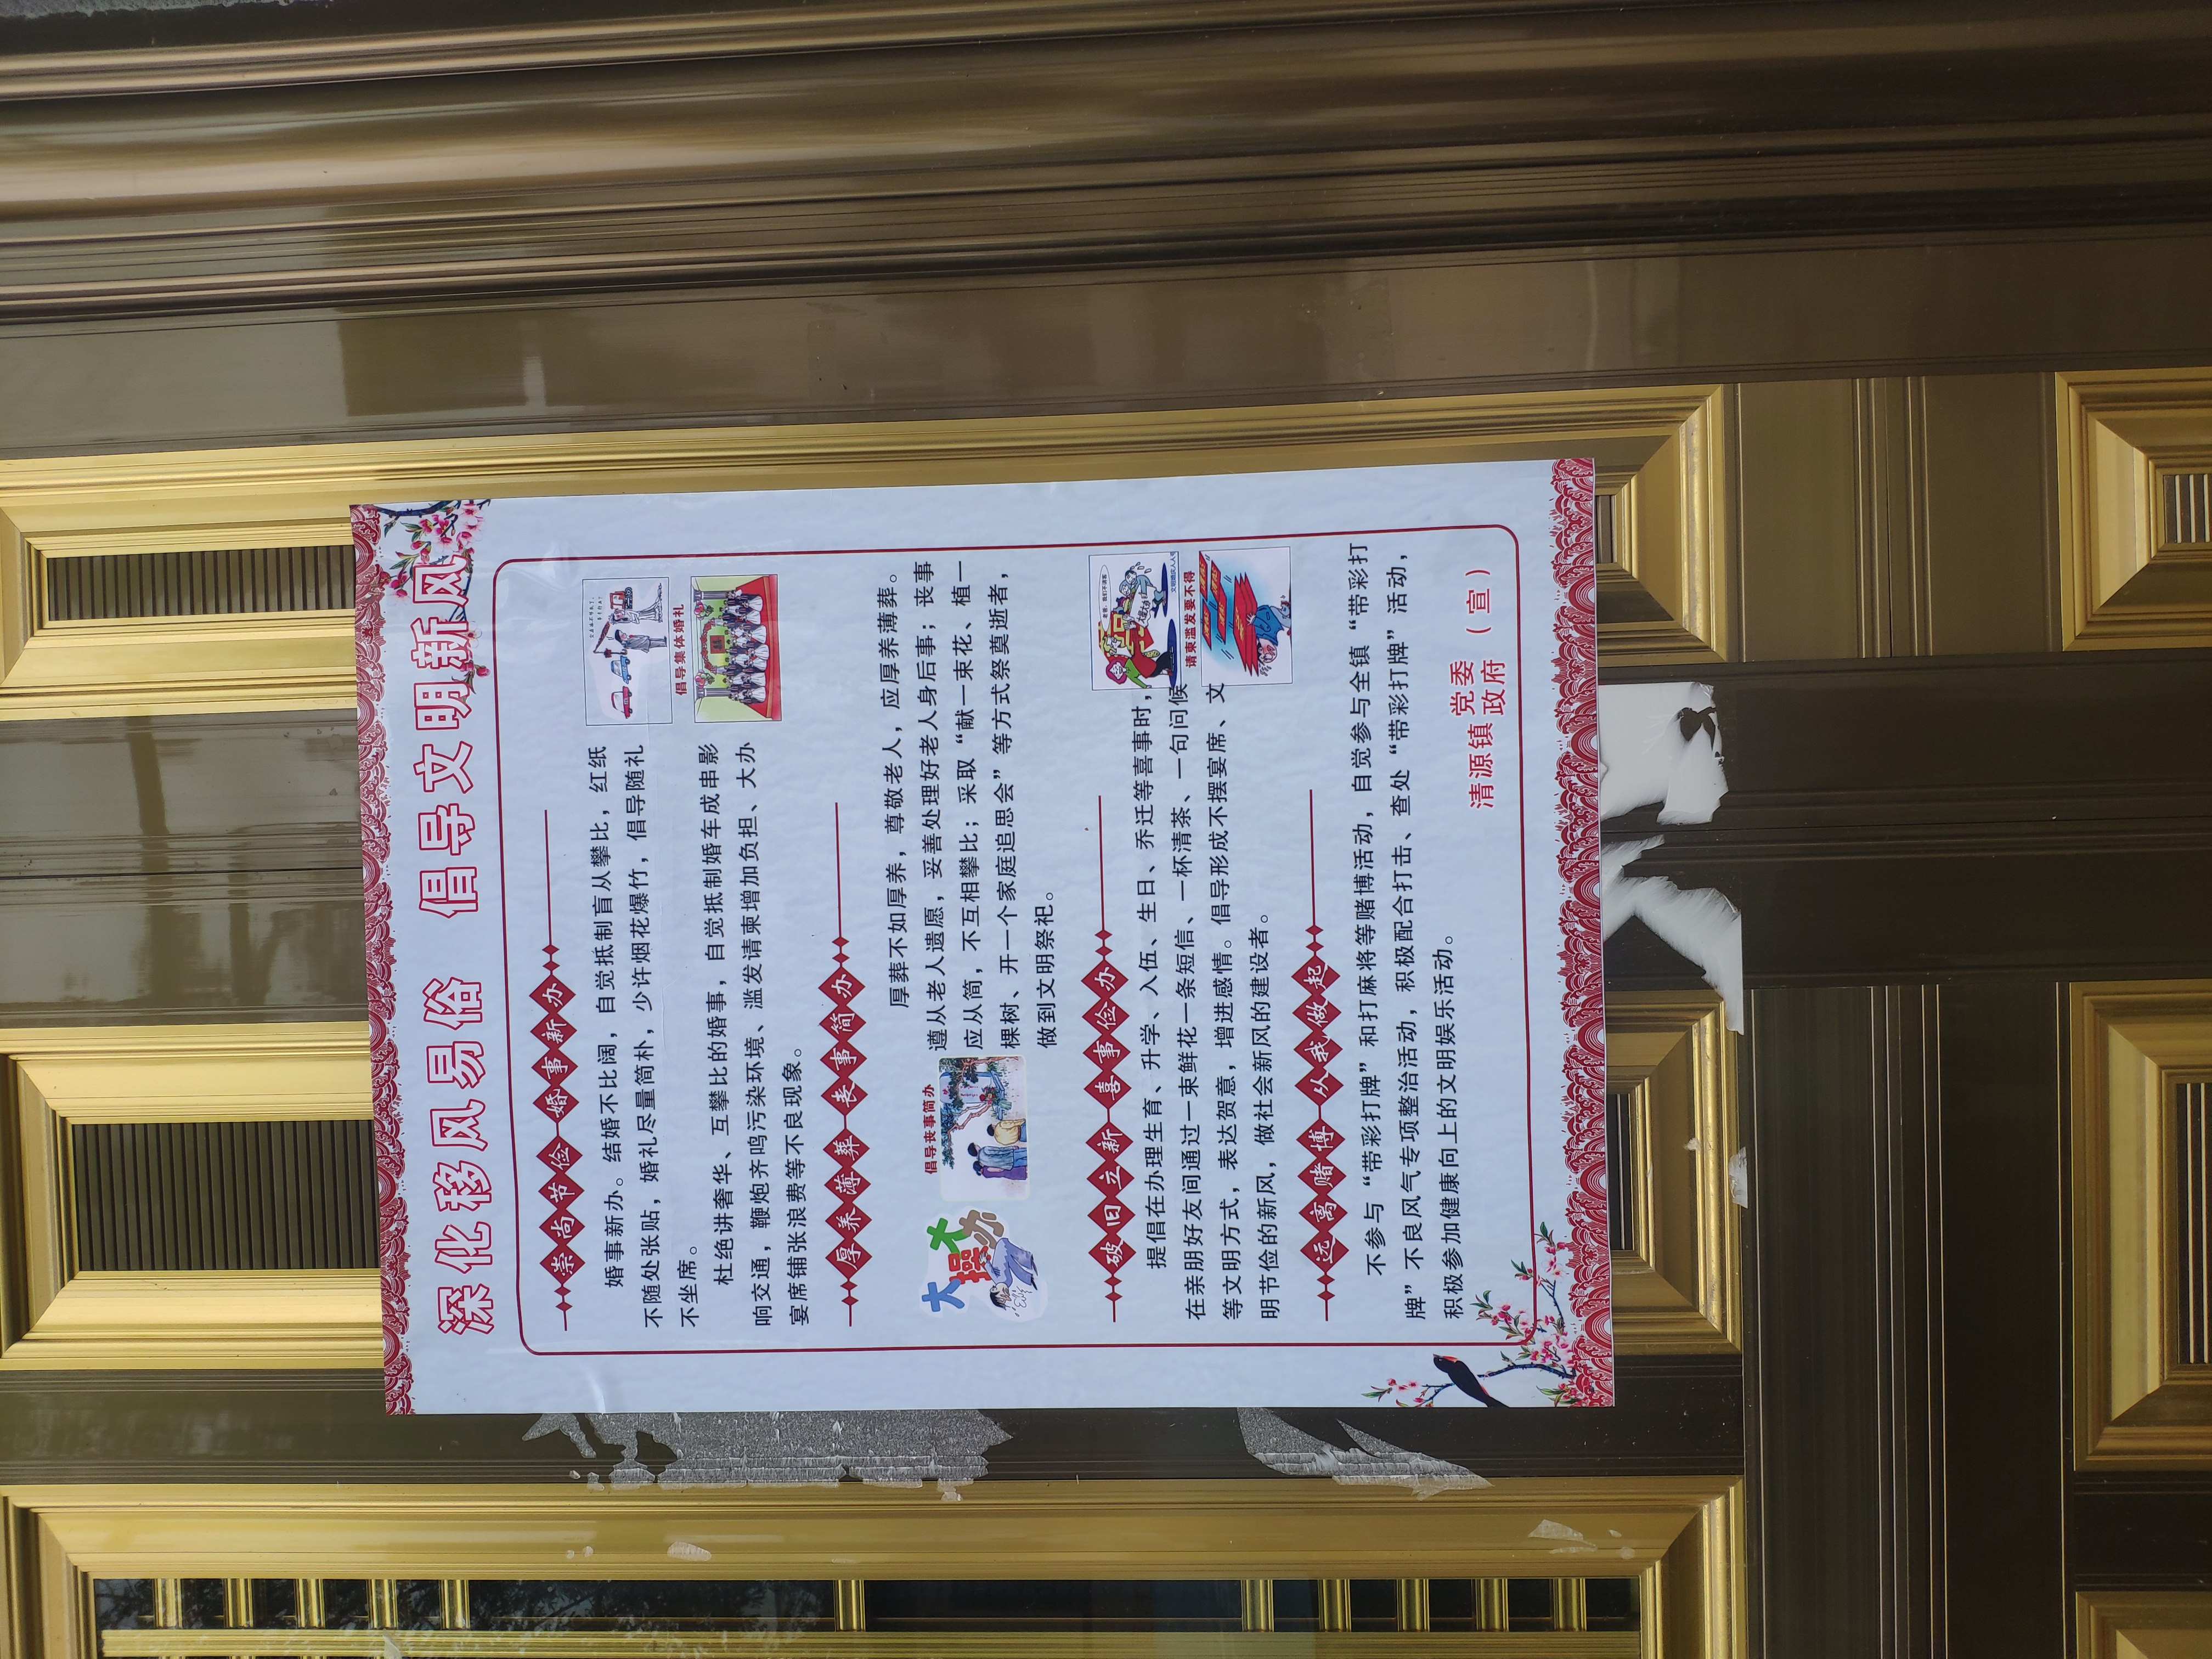 深化移风易俗 倡导文明新风
崇尚节俭 婚事新办
婚事新办。结婚不比阔，自觉抵制盲从攀比，红纸
不随处张贴，婚礼尽量简朴，少许烟花爆竹，倡导随礼
不坐席。
杜绝讲奢华、互攀比的婚事，自觉抵制婚车成串影
响交通，鞭炮齐鸣污染环境、滥发请柬增加负担、大办
宴席铺张浪费等不良现象。
倡导集体婚礼
厚养薄葬 丧事简办
大操大办
倡导丧事简办
厚葬不如厚养，尊敬老人，应厚养薄葬。
遵从老人遗愿，妥善处理好老人身后事；丧事
应从简，不互相攀比；采取“献一束花、植一
棵树、开一个家庭追思会”等方式祭奠逝者，
做到文明祭祀。
破旧立新 喜事俭办
提倡在办理生育、升学、入伍、生日、乔迁等喜事时，
在亲朋好友间通过一束鲜花一条短信、一杯清茶、一句问候
等文明方式，表达贺意，增进感情。倡导形成不摆宴席、文
明节俭的新风，做社会新风的建设者。
请柬滥发要不得
远离赌博 从我做起
不参与“带彩打牌”和打麻将等赌博活动，自觉参与全镇“带彩打
牌”不良风气专项整治活动，积极配合打击、查处“带彩打牌”活动，
积极参加健康向上的文明娱乐活动。
清源镇 党委 政府 （宣）